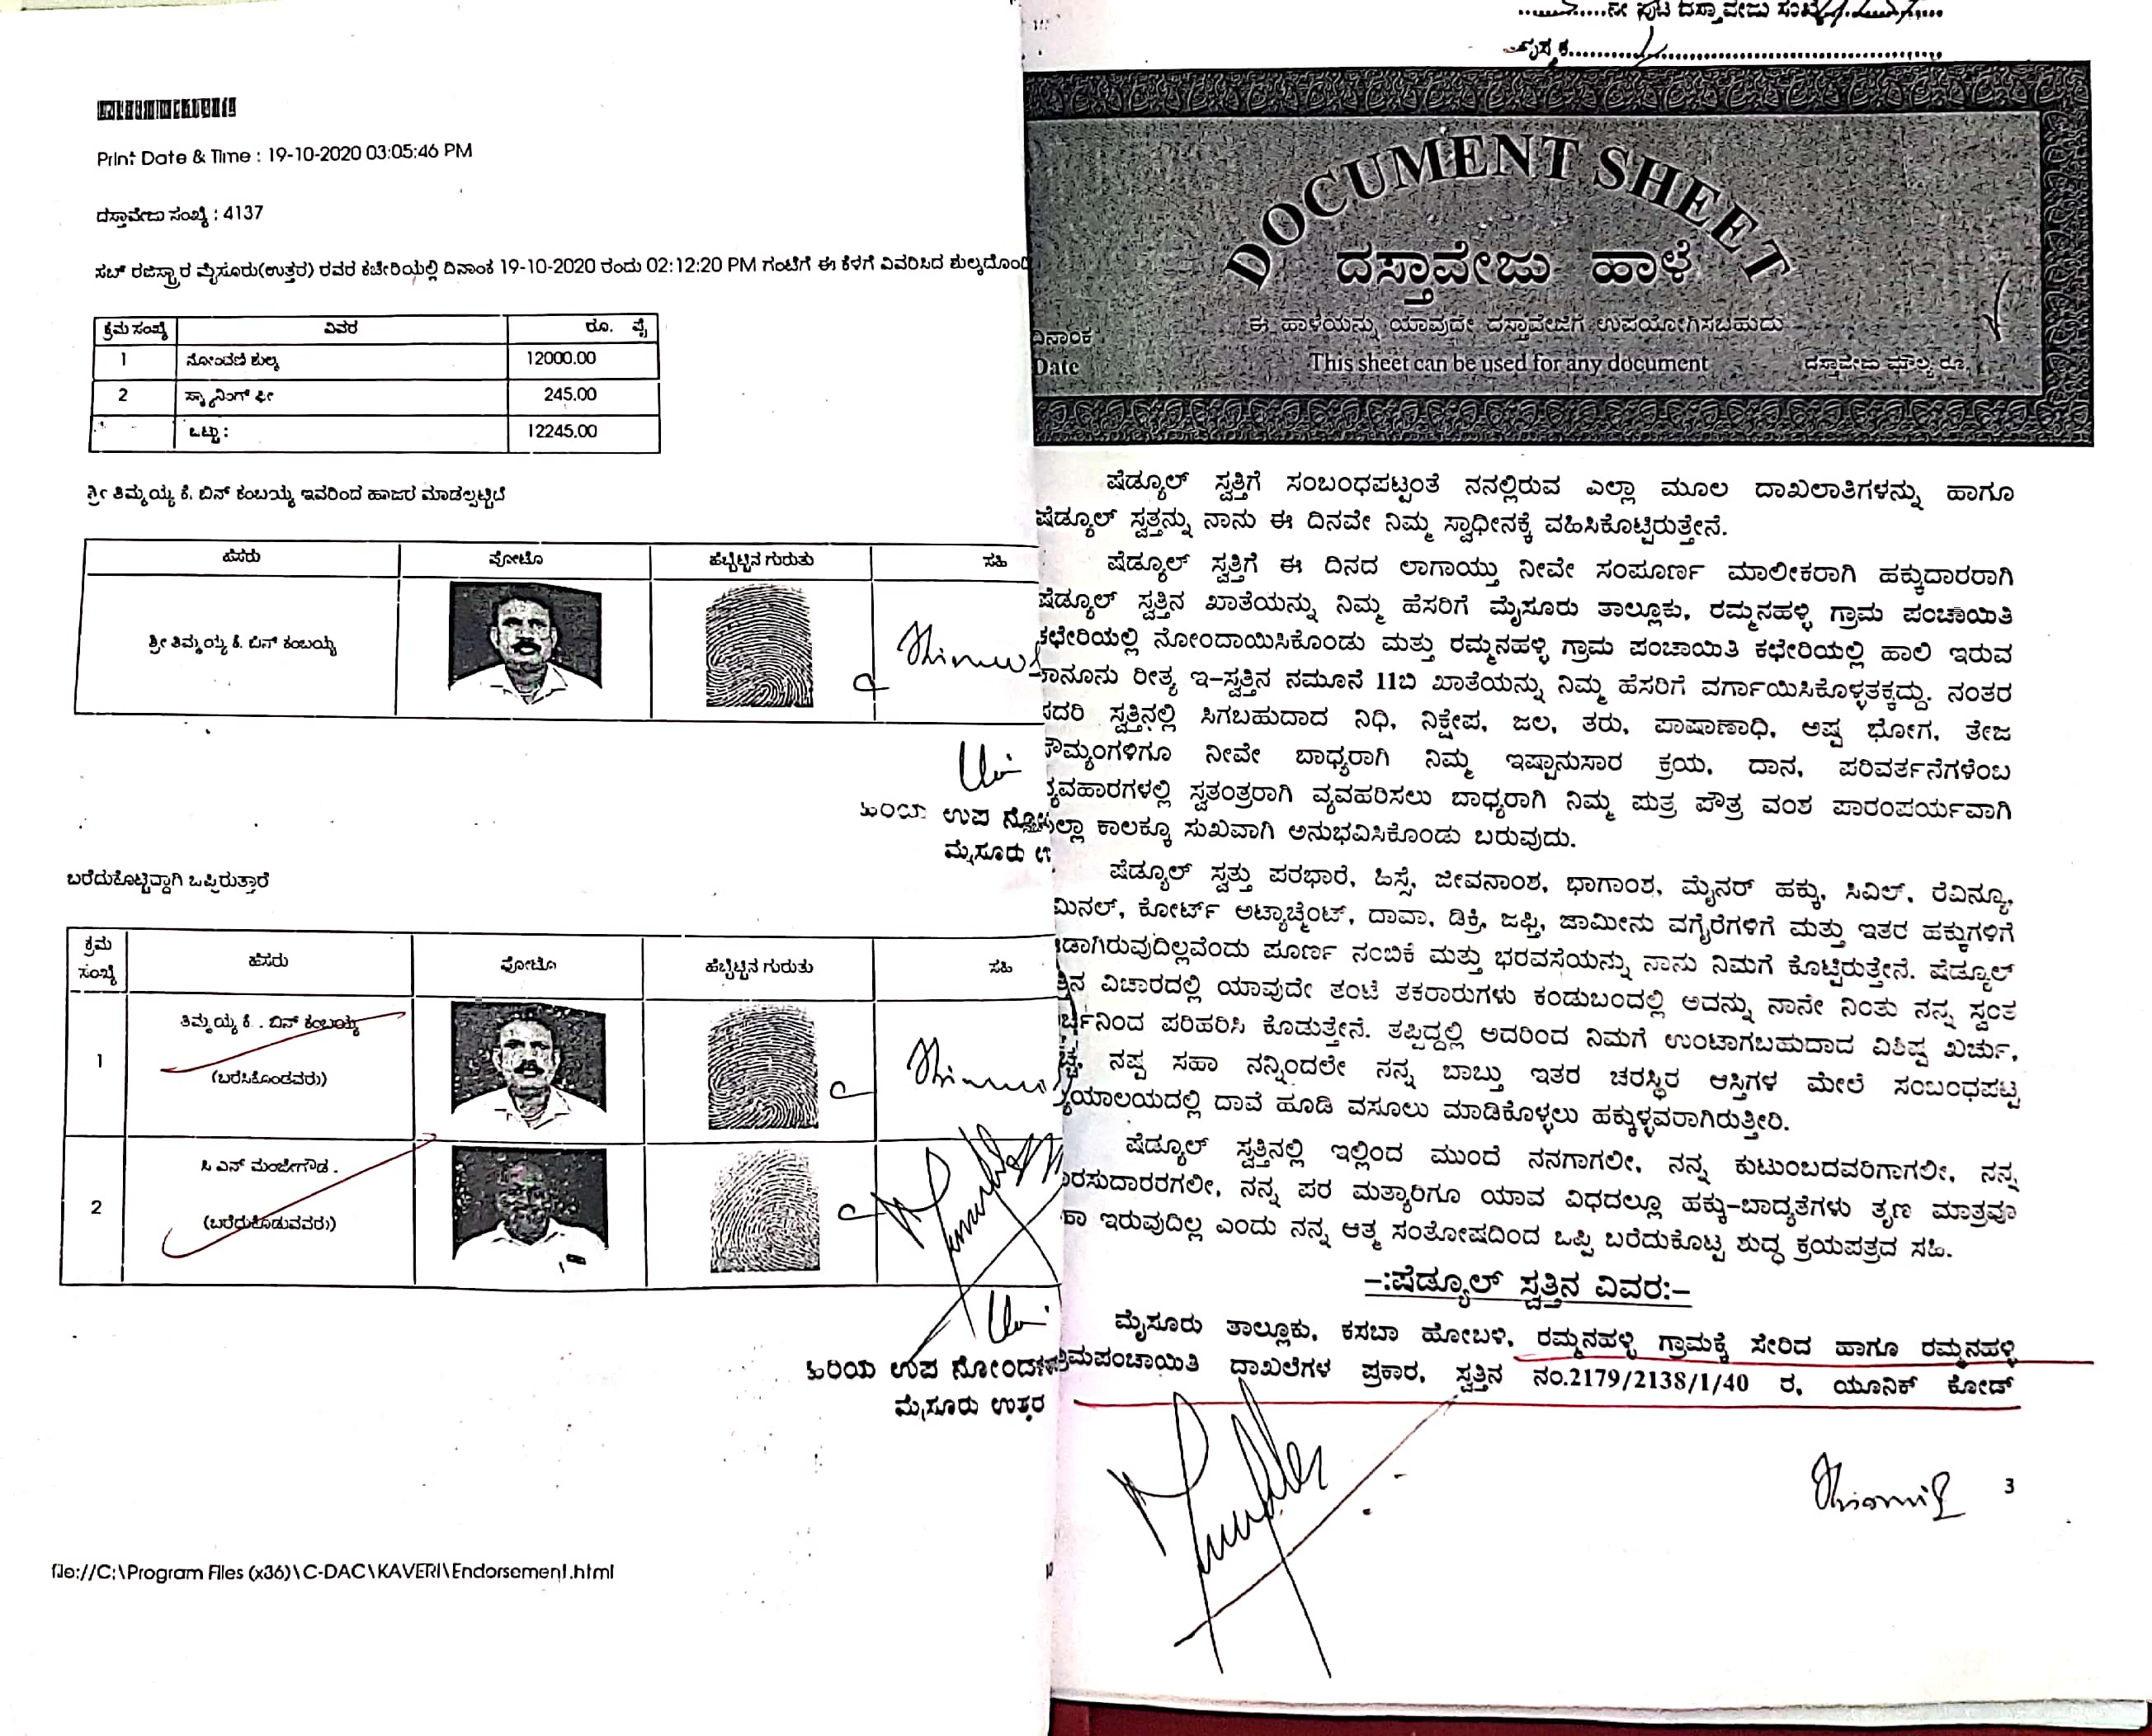 Print Date & Time : 19-10-2020 03:05:46 PM
ದಸ್ತಾವೇಜು ಸಂಖ್ಯೆ : 4137
ಸಬ್ ರಜಿಸ್ಟ್ರಾರ ಮೈಸೂರು(ಉತ್ತರ) ರವರ ಕಚೇರಿಯಲ್ಲಿ ದಿನಾಂಕ 19-10-2020 ರಂದು 02:12:20 PM ಗಂಟೆಗೆ ಈ ಕೆಳಗೆ ವಿವರಿಸಿದ ಶುಲ್ಕದೊಂದಿ
ಕ್ರಮ ಸಂಖ್ಯೆ ವಿವರ ರೂ. ಪೈ
1 ನೋಂದಣಿ ಶುಲ್ಕ 12000.00
2 ಸ್ಕ್ಯಾನಿಂಗ್ ಫೀ 245.00
ಒಟ್ಟು : 12245.00
ಶ್ರೀ ತಿಮ್ಮಯ್ಯ ಕೆ. ಬಿನ್ ಕಂಬಯ್ಯ ಇವರಿಂದ ಹಾಜರ ಮಾಡಲ್ಪಟ್ಟಿದೆ
ಹೆಸರು ಫೋಟೊ ಹೆಬ್ಬೆಟ್ಟಿನ ಗುರುತು ಸಹಿ
ಶ್ರೀ ತಿಮ್ಮಯ್ಯ ಕೆ. ಬಿನ್ ಕಂಬಯ್ಯ
ಉಪ
ಮೈಸೂರು
ಬರೆದುಕೊಟ್ಟಿದ್ದಾಗಿ ಒಪ್ಪಿರುತ್ತಾರೆ
ಕ್ರಮ ಸಂಖ್ಯೆ ಹೆಸರು ಫೋಟೊ ಹೆಬ್ಬೆಟ್ಟಿನ ಗುರುತು ಸಹಿ
1 ತಿಮ್ಮಯ್ಯ ಕೆ . ಬಿನ್ ಕಂಬಯ್ಯ
(ಬರೆಸಿಕೊಂಡವರು)
2 ಸಿ ಎನ್ ಮಂಜೇಗೌಡ .
(ಬರೆದುಕೊಡುವವರು)
ಹಿರಿಯ ಉಪ ನೋಂದಣ
ಮೈಸೂರು ಉತ್ತರ
file://C:\Program Files (x86)\C-DAC\KAVERI\Endorsement.html
ನೇ ಪುಟ ದಸ್ತಾವೇಜು ಸಂಖ್ಯೆ
ಪುಸ್ತಕ
DOCUMENT SHEET
ದಸ್ತಾವೇಜು ಹಾಳೆ
ಈ ಹಾಳೆಯನ್ನು ಯಾವುದೇ ದಸ್ತಾವೇಜಿಗೆ ಉಪಯೋಗಿಸಬಹುದು
ದಿನಾಂಕ
Date This sheet can be used for any document ದಸ್ತಾವೇಜು ಮೌಲ್ಯ ರೂ.
ಷೆಡ್ಯೂಲ್ ಸ್ವತ್ತಿಗೆ ಸಂಬಂಧಪಟ್ಟಂತೆ ನನಲ್ಲಿರುವ ಎಲ್ಲಾ ಮೂಲ ದಾಖಲಾತಿಗಳನ್ನು ಹಾಗೂ
ಷೆಡ್ಯೂಲ್ ಸ್ವತ್ತನ್ನು ನಾನು ಈ ದಿನವೇ ನಿಮ್ಮ ಸ್ವಾಧೀನಕ್ಕೆ ವಹಿಸಿಕೊಟ್ಟಿರುತ್ತೇನೆ.
ಷೆಡ್ಯೂಲ್ ಸ್ವತ್ತಿಗೆ ಈ ದಿನದ ಲಾಗಾಯ್ತು ನೀವೇ ಸಂಪೂರ್ಣ ಮಾಲೀಕರಾಗಿ ಹಕ್ಕುದಾರರಾಗಿ
ಷೆಡ್ಯೂಲ್ ಸ್ವತ್ತಿನ ಖಾತೆಯನ್ನು ನಿಮ್ಮ ಹೆಸರಿಗೆ ಮೈಸೂರು ತಾಲ್ಲೂಕು, ರಮ್ಮನಹಳ್ಳಿ ಗ್ರಾಮ ಪಂಚಾಯಿತಿ
ಕಛೇರಿಯಲ್ಲಿ ನೋಂದಾಯಿಸಿಕೊಂಡು ಮತ್ತು ರಮ್ಮನಹಳ್ಳಿ ಗ್ರಾಮ ಪಂಚಾಯಿತಿ ಕಛೇರಿಯಲ್ಲಿ ಹಾಲಿ ಇರುವ
ಕಾನೂನು ರೀತ್ಯ ಇ-ಸ್ವತ್ತಿನ ನಮೂನೆ 11ಬಿ ಖಾತೆಯನ್ನು ನಿಮ್ಮ ಹೆಸರಿಗೆ ವರ್ಗಾಯಿಸಿಕೊಳ್ಳತಕ್ಕದ್ದು. ನಂತರ
ಸದರಿ ಸ್ವತ್ತಿನಲ್ಲಿ ಸಿಗಬಹುದಾದ ನಿಧಿ, ನಿಕ್ಷೇಪ, ಜಲ, ತರು, ಪಾಷಾಣಾಧಿ, ಅಷ್ಟ ಭೋಗ, ತೇಜ
ಸೌಮ್ಯಂಗಳಿಗೂ ನೀವೇ ಬಾಧ್ಯರಾಗಿ ನಿಮ್ಮ ಇಷ್ಟಾನುಸಾರ ಕ್ರಯ, ದಾನ, ಪರಿವರ್ತನೆಗಳೆಂಬ
ವ್ಯವಹಾರಗಳಲ್ಲಿ ಸ್ವತಂತ್ರರಾಗಿ ವ್ಯವಹರಿಸಲು ಬಾಧ್ಯರಾಗಿ ನಿಮ್ಮ ಪುತ್ರ ಪೌತ್ರ ವಂಶ ಪಾರಂಪರ್ಯವಾಗಿ
ಲ್ಲಾ ಕಾಲಕ್ಕೂ ಸುಖವಾಗಿ ಅನುಭವಿಸಿಕೊಂಡು ಬರುವುದು.
ಷೆಡ್ಯೂಲ್ ಸ್ವತ್ತು ಪರಭಾರೆ, ಹಿಸ್ಸೆ, ಜೀವನಾಂಶ, ಭಾಗಾಂಶ, ಮೈನರ್ ಹಕ್ಕು, ಸಿವಿಲ್, ರೆವಿನ್ಯೂ,
ಮಿನಲ್, ಕೋರ್ಟ್ ಅಟ್ಯಾಚ್ಮೆಂಟ್, ದಾವಾ, ಡಿಕ್ರಿ, ಜಫ್ತಿ, ಜಾಮೀನು ವಗೈರೆಗಳಿಗೆ ಮತ್ತು ಇತರ ಹಕ್ಕುಗಳಿಗೆ
ಡಾಗಿರುವುದಿಲ್ಲವೆಂದು ಪೂರ್ಣ ನಂಬಿಕೆ ಮತ್ತು ಭರವಸೆಯನ್ನು ನಾನು ನಿಮಗೆ ಕೊಟ್ಟಿರುತ್ತೇನೆ. ಷೆಡ್ಯೂಲ್
ತ್ತಿನ ವಿಚಾರದಲ್ಲಿ ಯಾವುದೇ ತಂಟೆ ತಕರಾರುಗಳು ಕಂಡುಬಂದಲ್ಲಿ ಅದನ್ನು ನಾನೇ ನಿಂತು ನನ್ನ ಸ್ವಂತ
ರ್ಚಿನಿಂದ ಪರಿಹರಿಸಿ ಕೊಡುತ್ತೇನೆ. ತಪ್ಪಿದ್ದಲ್ಲಿ ಅದರಿಂದ ನಿಮಗೆ ಉಂಟಾಗಬಹುದಾದ ವಿಶಿಷ್ಟ ಖರ್ಚು,
ನಷ್ಟ ಸಹಾ ನನ್ನಿಂದಲೇ ನನ್ನ ಬಾಬ್ತು ಇತರ ಚರಸ್ಥಿರ ಆಸ್ತಿಗಳ ಮೇಲೆ ಸಂಬಂಧಪಟ್ಟ
ಯಾಲಯದಲ್ಲಿ ದಾವೆ ಹೂಡಿ ವಸೂಲು ಮಾಡಿಕೊಳ್ಳಲು ಹಕ್ಕುಳ್ಳವರಾಗಿರುತ್ತೀರಿ.
ಷೆಡ್ಯೂಲ್ ಸ್ವತ್ತಿನಲ್ಲಿ ಇಲ್ಲಿಂದ ಮುಂದೆ ನನಗಾಗಲೀ, ನನ್ನ ಕುಟುಂಬದವರಿಗಾಗಲೀ, ನನ್ನ
ರಸುದಾರರಗಲೀ, ನನ್ನ ಪರ ಮತ್ಯಾರಿಗೂ ಯಾವ ವಿಧದಲ್ಲೂ ಹಕ್ಕು-ಬಾದ್ಯತೆಗಳು ತೃಣ ಮಾತ್ರವೂ
ಹಾ ಇರುವುದಿಲ್ಲ ಎಂದು ನನ್ನ ಆತ್ಮ ಸಂತೋಷದಿಂದ ಒಪ್ಪಿ ಬರೆದುಕೊಟ್ಟ ಶುದ್ಧ ಕ್ರಯಪತ್ರದ ಸಹಿ.
-:ಷೆಡ್ಯೂಲ್ ಸ್ವತ್ತಿನ ವಿವರ:-
ಮೈಸೂರು ತಾಲ್ಲೂಕು, ಕಸಬಾ ಹೋಬಳಿ, ರಮ್ಮನಹಳ್ಳಿ ಗ್ರಾಮಕ್ಕೆ ಸೇರಿದ ಹಾಗೂ ರಮ್ಮನಹಳ್ಳಿ
ಮಪಂಚಾಯಿತಿ ದಾಖಲೆಗಳ ಪ್ರಕಾರ, ಸ್ವತ್ತಿನ ನಂ.2179/2138/1/40 ರ, ಯೂನಿಕ್ ಕೋಡ್
3